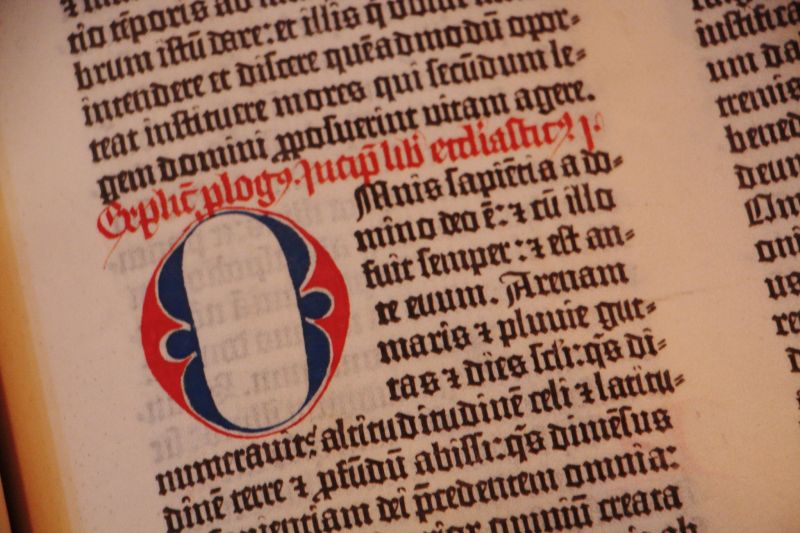 rio tēporis
brum istū dare: et illis
intendere et discere quēadmodū opor-
teat instituere mores qui secūdum le-
gem domini ꝓposuerint vitam agere.
Explic̄ ꝓlogꝰ. Incip̄ lib̄ ecclīasticꝰ
OMnis sapiētia a do-
mino deo ē: ⁊ cū illo
fuit semper: ⁊ est an-
te euum. Arenam
maris ⁊ pluuie gut-
tas ⁊ dies scl̄i: q̄s di-
numerauit? altitudītudinē celi ⁊ latitu-
dinē terre ⁊ ꝓfūdū abissi: q̄s dimēsus
sapientiam dei p̄cedentem omnia:
omniū creata
iustifica
um da
tremis
bened
deum
oni
us